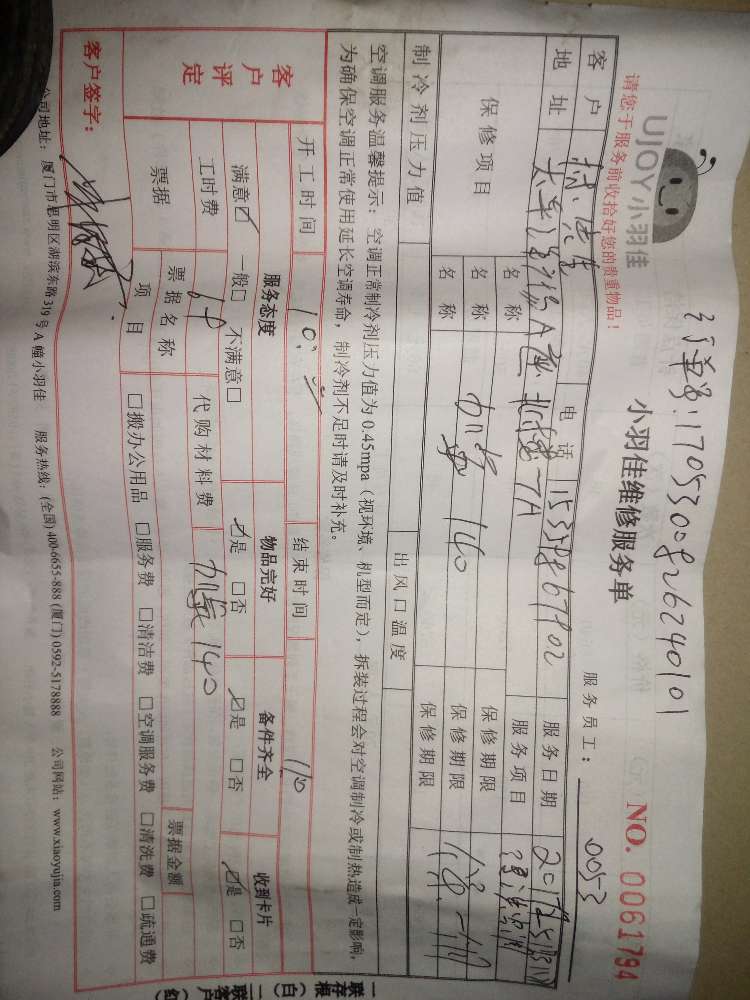 UJOY小羽佳
请您于服务前收拾好您的贵重物品！
单号:17053008262401 01
小羽佳维修服务单
服务员工：0053
NO. 0061794
客户
电话
服务日期
地址
A
7A
服务项目
保修项目
名称
保修期限
名称
加氟 140
保修期限
名称
保修期限
制冷剂压力值
出风口温度
空调服务温馨提示：空调正常制冷剂压力值为0.45mpa（视环境、机型而定），拆装过程会对空调制冷或制热造成一定影响，
为确保空调正常使用延长空调寿命，制冷剂不足时请及时补充。
开工时间
10:
结束时间
客户评定
服务态度
物品完好
备件齐全
收到卡片
满意☑ 一般□ 不满意□
☑是 □否
☑是 □否
☑是 □否
工时费
代购材料费
加氟140
票据
票据名称
票据金额
项目
□搬办公用品 □服务费 □清洁费 □空调服务费 □清洗费 □疏通费
客户签字：
公司地址：厦门市思明区湖滨东路319号A幢小羽佳 服务热线：(全国) 400-6655-888 (厦门) 0592-5178888 公司网站：www.xiaoyujia.com
一联存根（白）